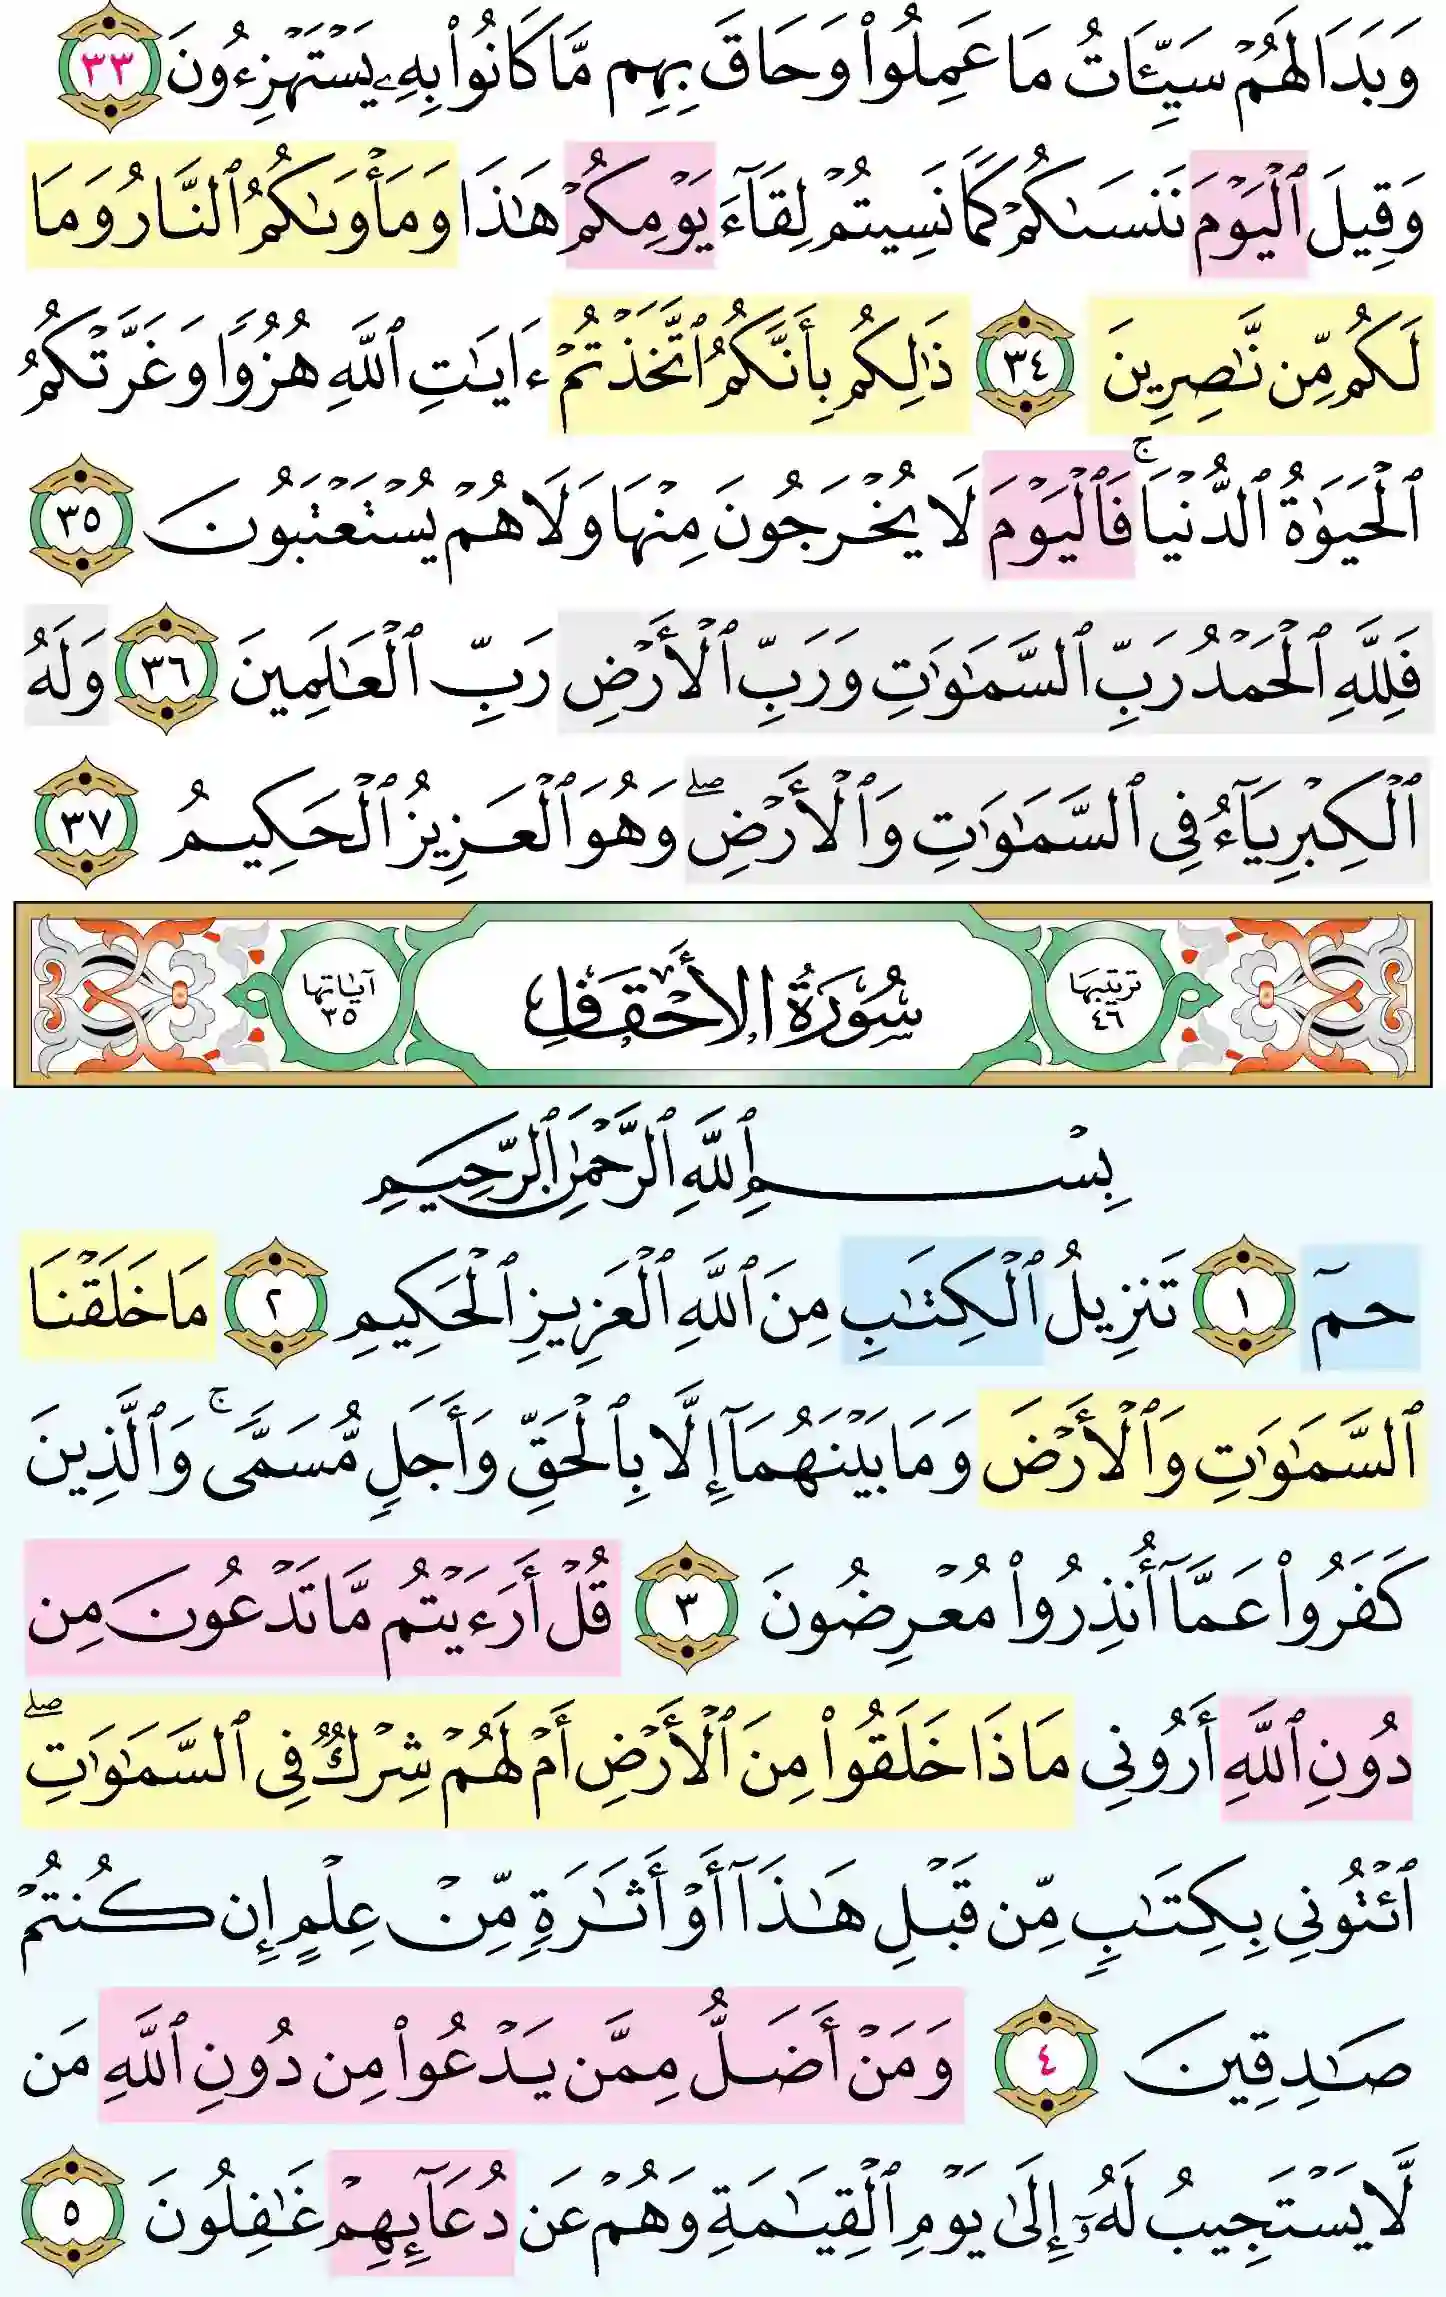 وَبَدَا لَهُمْ سَيِّـَٔاتُ مَا عَمِلُوا۟ وَحَاقَ بِهِم مَّا كَانُوا۟ بِهِۦ يَسْتَهْزِءُونَ ٣٣
وَقِيلَ ٱلْيَوْمَ نَنسَىٰكُمْ كَمَا نَسِيتُمْ لِقَآءَ يَوْمِكُمْ هَـٰذَا وَمَأْوَىٰكُمُ ٱلنَّارُ وَمَا
لَكُم مِّن نَّـٰصِرِينَ ٣٤ ذَٰلِكُم بِأَنَّكُمُ ٱتَّخَذْتُمْ ءَايَـٰتِ ٱللَّهِ هُزُوًا وَغَرَّتْكُمُ
ٱلْحَيَوٰةُ ٱلدُّنْيَا ۚ فَٱلْيَوْمَ لَا يُخْرَجُونَ مِنْهَا وَلَا هُمْ يُسْتَعْتَبُونَ ٣٥
فَلِلَّهِ ٱلْحَمْدُ رَبِّ ٱلسَّمَـٰوَٰتِ وَرَبِّ ٱلْأَرْضِ رَبِّ ٱلْعَـٰلَمِينَ ٣٦ وَلَهُ
ٱلْكِبْرِيَآءُ فِى ٱلسَّمَـٰوَٰتِ وَٱلْأَرْضِ ۖ وَهُوَ ٱلْعَزِيزُ ٱلْحَكِيمُ ٣٧
ترتيبها ٤٦ سُورَةُ الأَحْقَافِ آياتها ٣٥
بِسْمِ ٱللَّهِ ٱلرَّحْمَـٰنِ ٱلرَّحِيمِ
حمٓ ١ تَنزِيلُ ٱلْكِتَـٰبِ مِنَ ٱللَّهِ ٱلْعَزِيزِ ٱلْحَكِيمِ ٢ مَا خَلَقْنَا
ٱلسَّمَـٰوَٰتِ وَٱلْأَرْضَ وَمَا بَيْنَهُمَآ إِلَّا بِٱلْحَقِّ وَأَجَلٍ مُّسَمًّى ۚ وَٱلَّذِينَ
كَفَرُوا۟ عَمَّآ أُنذِرُوا۟ مُعْرِضُونَ ٣ قُلْ أَرَءَيْتُم مَّا تَدْعُونَ مِن
دُونِ ٱللَّهِ أَرُونِى مَاذَا خَلَقُوا۟ مِنَ ٱلْأَرْضِ أَمْ لَهُمْ شِرْكٌ فِى ٱلسَّمَـٰوَٰتِ ۖ
ٱئْتُونِى بِكِتَـٰبٍ مِّن قَبْلِ هَـٰذَآ أَوْ أَثَـٰرَةٍ مِّنْ عِلْمٍ إِن كُنتُمْ
صَـٰدِقِينَ ٤ وَمَنْ أَضَلُّ مِمَّن يَدْعُوا۟ مِن دُونِ ٱللَّهِ مَن
لَّا يَسْتَجِيبُ لَهُۥٓ إِلَىٰ يَوْمِ ٱلْقِيَـٰمَةِ وَهُمْ عَن دُعَآئِهِمْ غَـٰفِلُونَ ٥